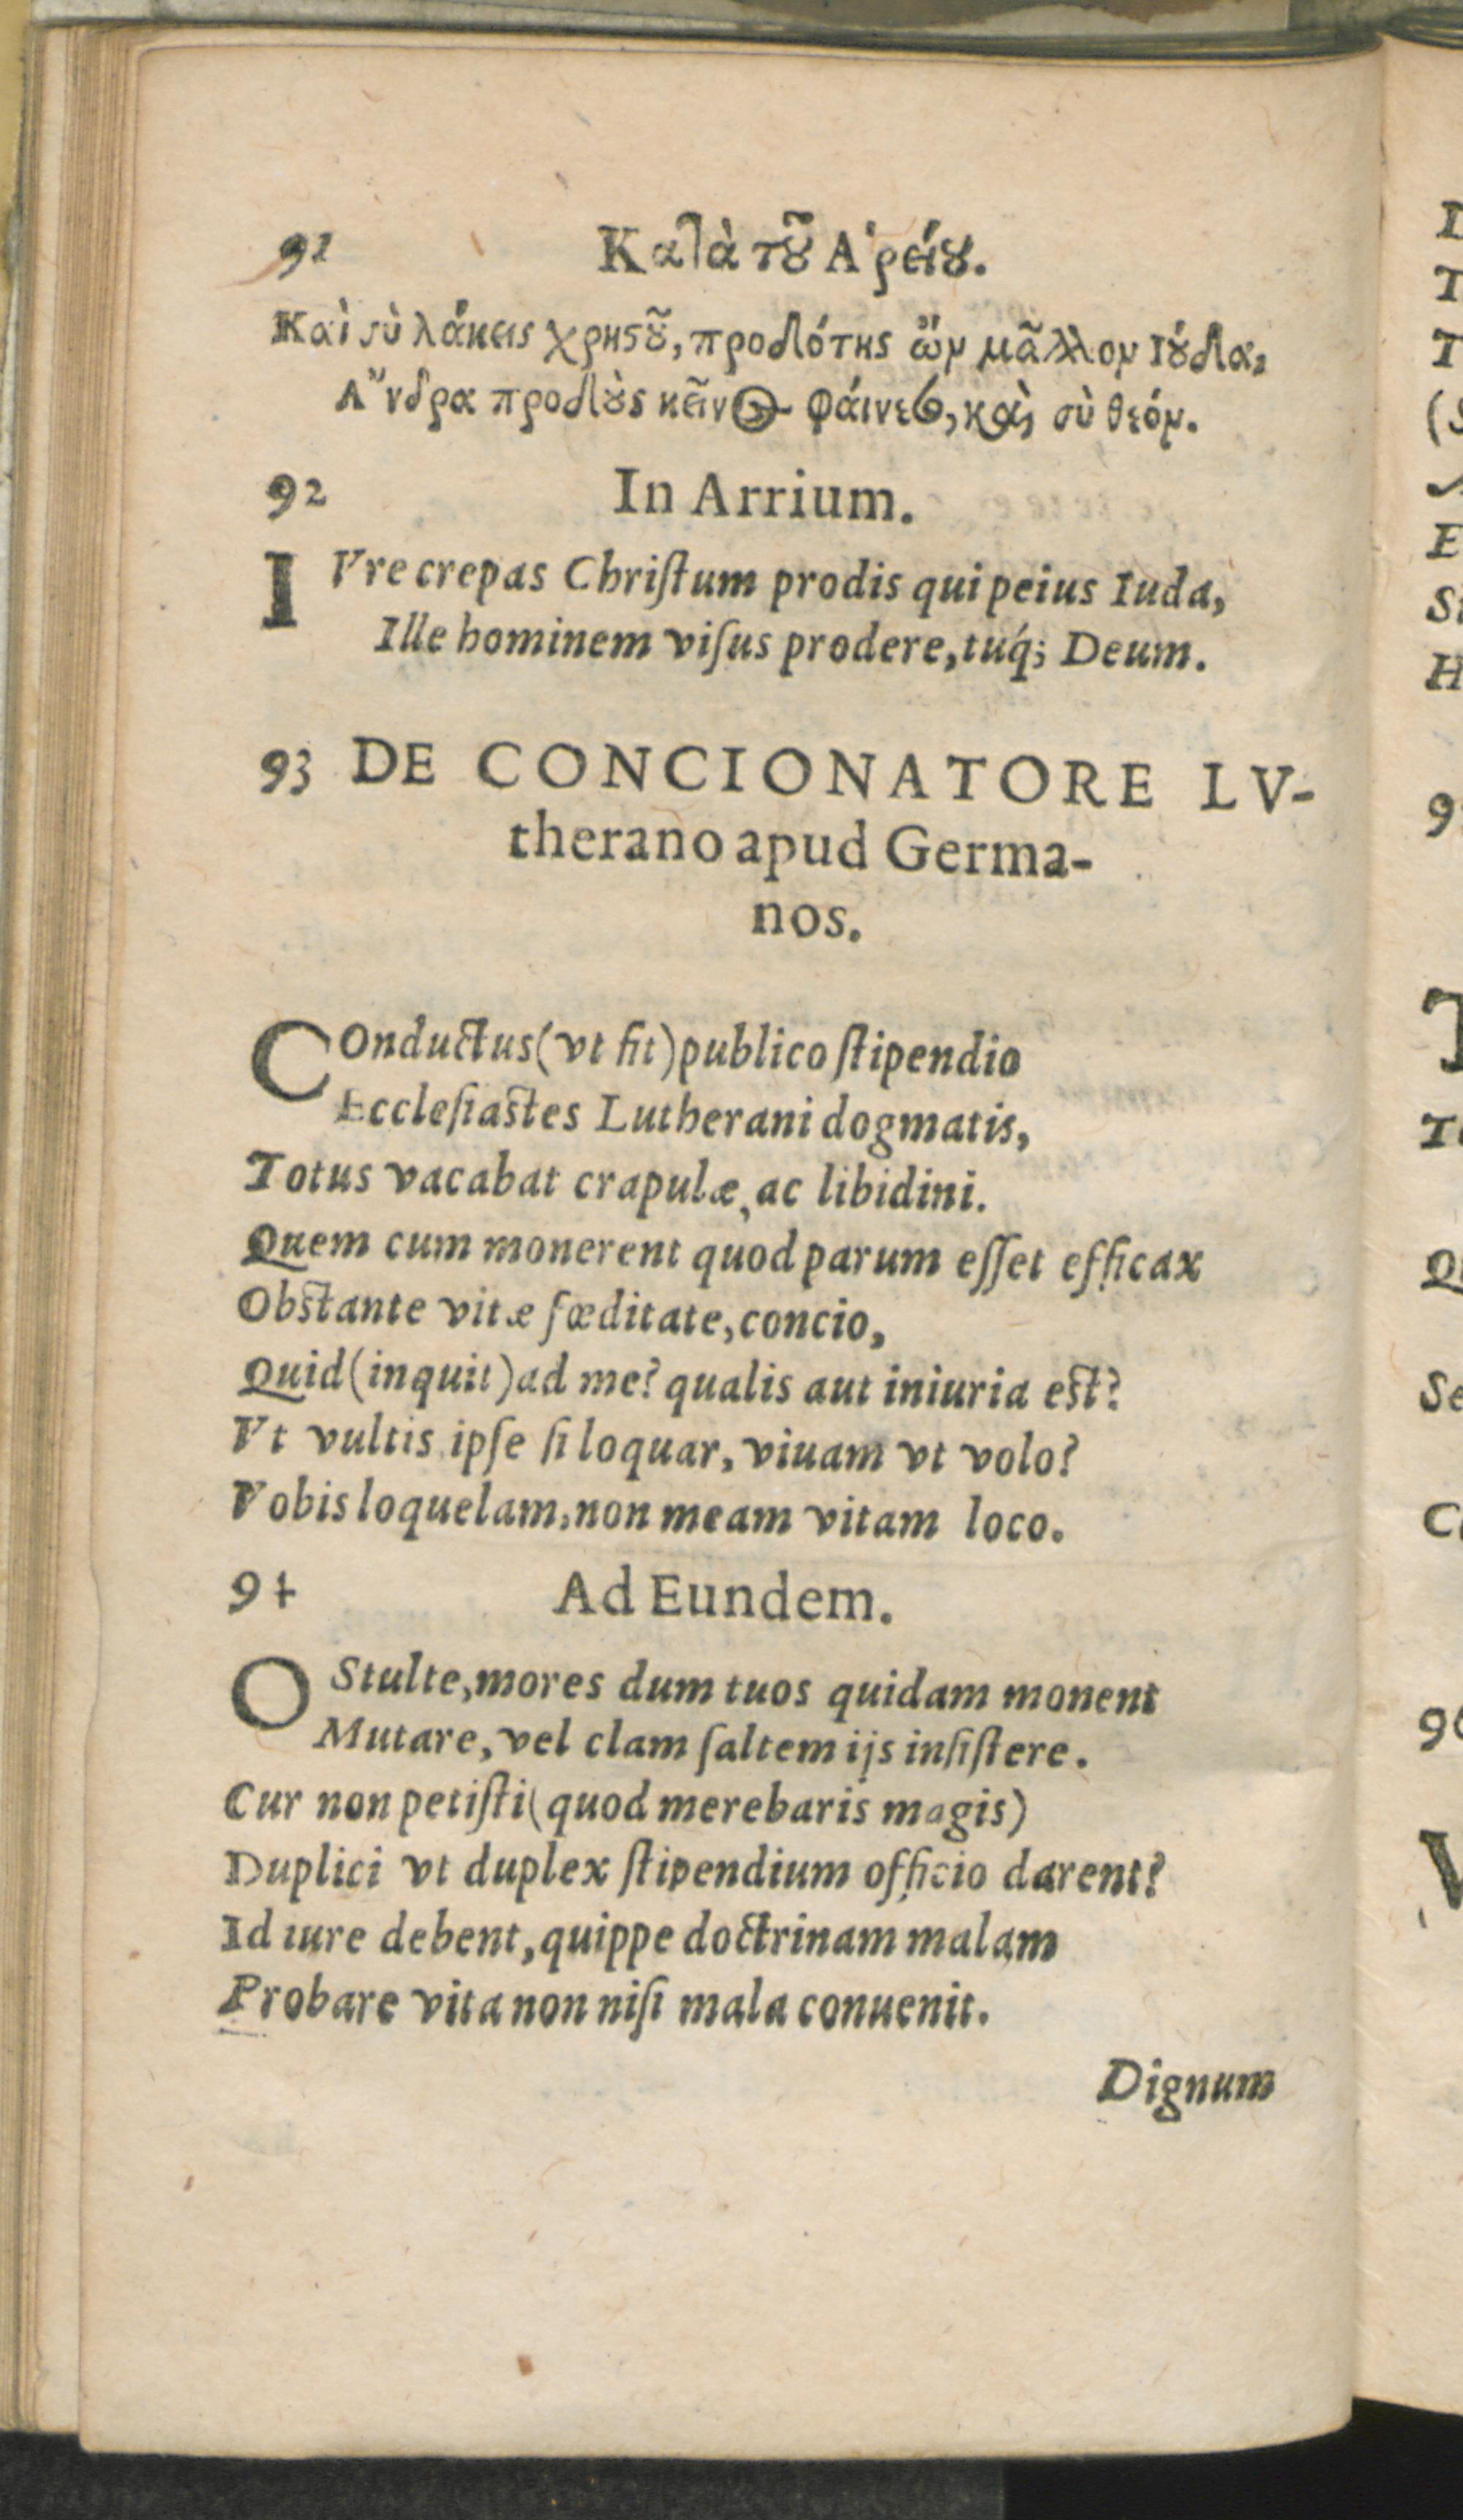 91 Καὶὰ τοῦ Α᾿ρείου.
Καὶ σὺ λάκεις χρηστοῦ, προδότης ὢν μᾶλλον Ιούδα,
Α῎νδρα προδοὺς κεῖνος φάινεται, καὶ σὺ θεόν.
92 In Arrium.
IVre crepas Chriſtum prodis qui peius Iuda,
Ille hominem viſus prodere, tuq́; Deum.
93 DE CONCIONATORE LV-
therano apud Germa-
nos.
COnductus (vt fit) publico ſtipendio
Eccleſiastes Lutherani dogmatis,
Totus vacabat crapulæ, ac libidini.
Quem cum monerent quod parum eſſet efficax
Obstante vitæ fœditate, concio,
Quid (inquit) ad me? qualis aut iniuria est?
Vt vultis ipſe ſi loquar, viuam vt volo?
Vobis loquelam, non meam vitam loco.
94 Ad Eundem.
O Stulte, mores dum tuos quidam monent
Mutare, vel clam ſaltem ijs inſiſtere.
Cur non petiſti (quod merebaris magis)
Duplici vt duplex ſtipendium officio darent?
Id iure debent, quippe doctrinam malam
Probare vita non niſi mala conuenit.
Dignum